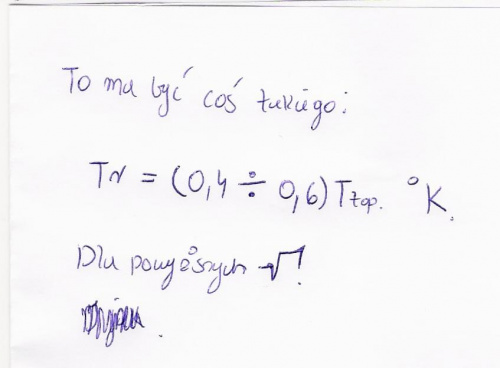 To ma być coś takiego:
Tr = (0,4 ÷ 0,6) Ttop. °K.
Dla powyższych √!